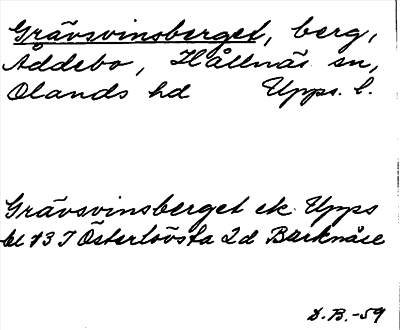 Grävsvinsberget, berg,
Åddebo, Hållnäs sn,
Olands hd Upps. l.
Grävsvinsberget ek. Upps
bl 13 I Österlövsta 2d Barknåre
D.B.-59